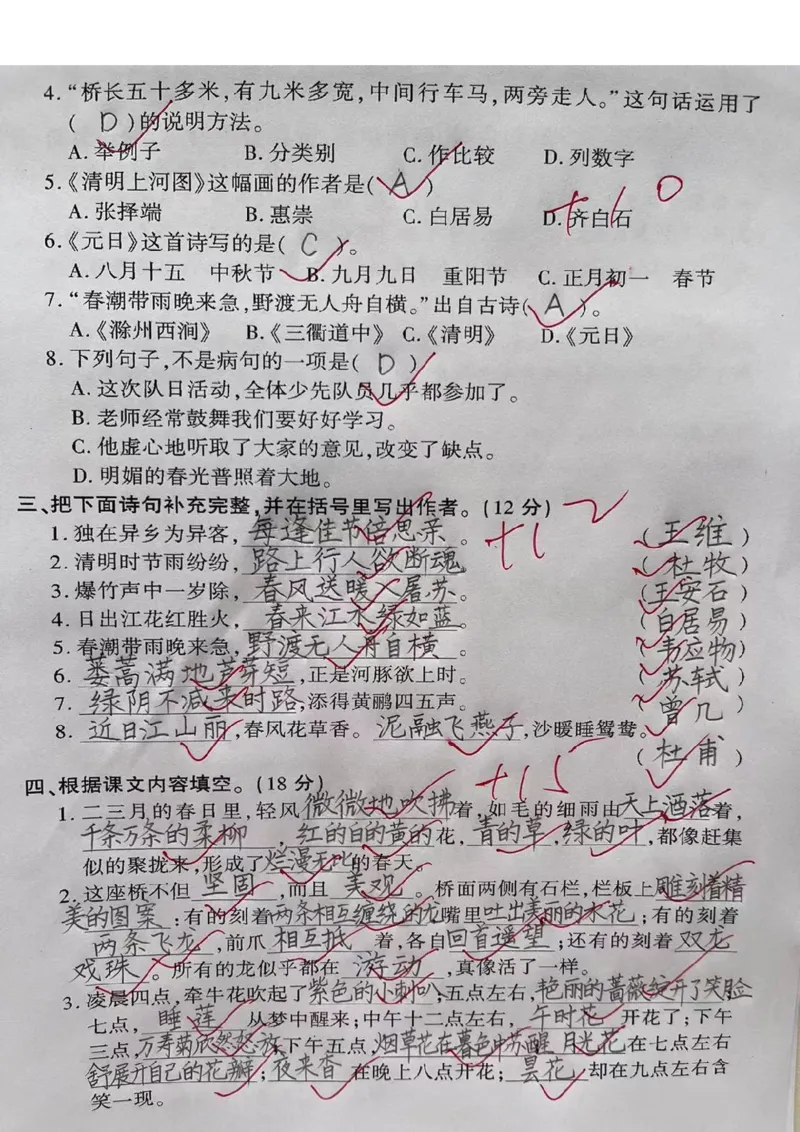 4.“桥长五十多米,有九米多宽,中间行车马,两旁走人。”这句话运用了
( D )的说明方法。
A.举例子 B.分类别 C.作比较 D.列数字
5.《清明上河图》这幅画的作者是( A )
A.张择端 B.惠崇 C.白居易 D.齐白石
+10
6.《元日》这首诗写的是( C )。
A.八月十五 中秋节 B.九月九日 重阳节 C.正月初一 春节
7.“春潮带雨晚来急,野渡无人舟自横。”出自古诗( A )。
A.《滁州西涧》 B.《三衢道中》 C.《清明》 D.《元日》
8.下列句子,不是病句的一项是( D )
A.这次队日活动,全体少先队员几乎都参加了。
B.老师经常鼓舞我们要好好学习。
C.他虚心地听取了大家的意见,改变了缺点。
D.明媚的春光普照着大地。
三、把下面诗句补充完整,并在括号里写出作者。(12分)
1.独在异乡为异客,每逢佳节倍思亲。 (王维)
2.清明时节雨纷纷,路上行人欲断魂。 (杜牧)
3.爆竹声中一岁除,春风送暖入屠苏。 (王安石)
4.日出江花红胜火,春来江水绿如蓝。 (白居易)
5.春潮带雨晚来急,野渡无人舟自横。 (韦应物)
6.蒌蒿满地芦芽短,正是河豚欲上时。 (苏轼)
7.绿阴不减来时路,添得黄鹂四五声。 (曾几)
8.近日江山丽,春风花草香。泥融飞燕子,沙暖睡鸳鸯。
(杜甫)
四、根据课文内容填空。(18分) +15
1.二三月的春日里,轻风微微地吹拂着,如毛的细雨由天上洒落着,
千条万条的柔柳,红的白的黄的花,青的草,绿的叶,都像赶集
似的聚拢来,形成了烂漫无比的春天。
2.这座桥不但坚固,而且美观。桥面两侧有石栏,栏板上雕刻着精
美的图案:有的刻着两条相互缠绕的龙嘴里吐出美丽的水花;有的刻着
两条飞龙,前爪相互抵着,各自回首遥望;还有的刻着双龙
戏珠。所有的龙似乎都在游动,真像活了一样。
3.凌晨四点,牵牛花吹起了紫色的小喇叭;五点左右,艳丽的蔷薇绽开了笑脸
七点,睡莲从梦中醒来;中午十二点左右,午时花开花了;下午
三点,万寿菊欣然怒放;下午五点,烟草花在暮色中苏醒 月光花在七点左右
舒展开自己的花瓣;夜来香在晚上八点开花;昙花却在九点左右含
笑一现。